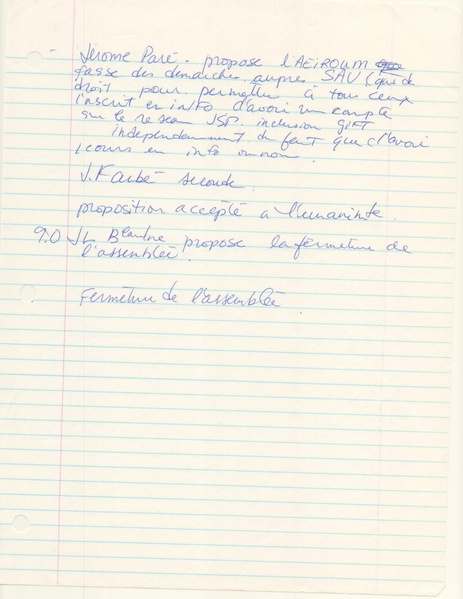 - Jérome Paré. propose l'AEIROUM
fasse des démarches auprès SAU (qui de
droit pour permettre à tous ceux
inscrit en info d'avoir un compte
sur le reseau JSP. inclusion
independamment du fait que d'avoir
1 cours en info ou non.
J. Farbé seconde.
proposition accepté a l'unanimité.
9.0 JL propose la fermeture de
l'assemblée.
Fermeture de l'assemblée.